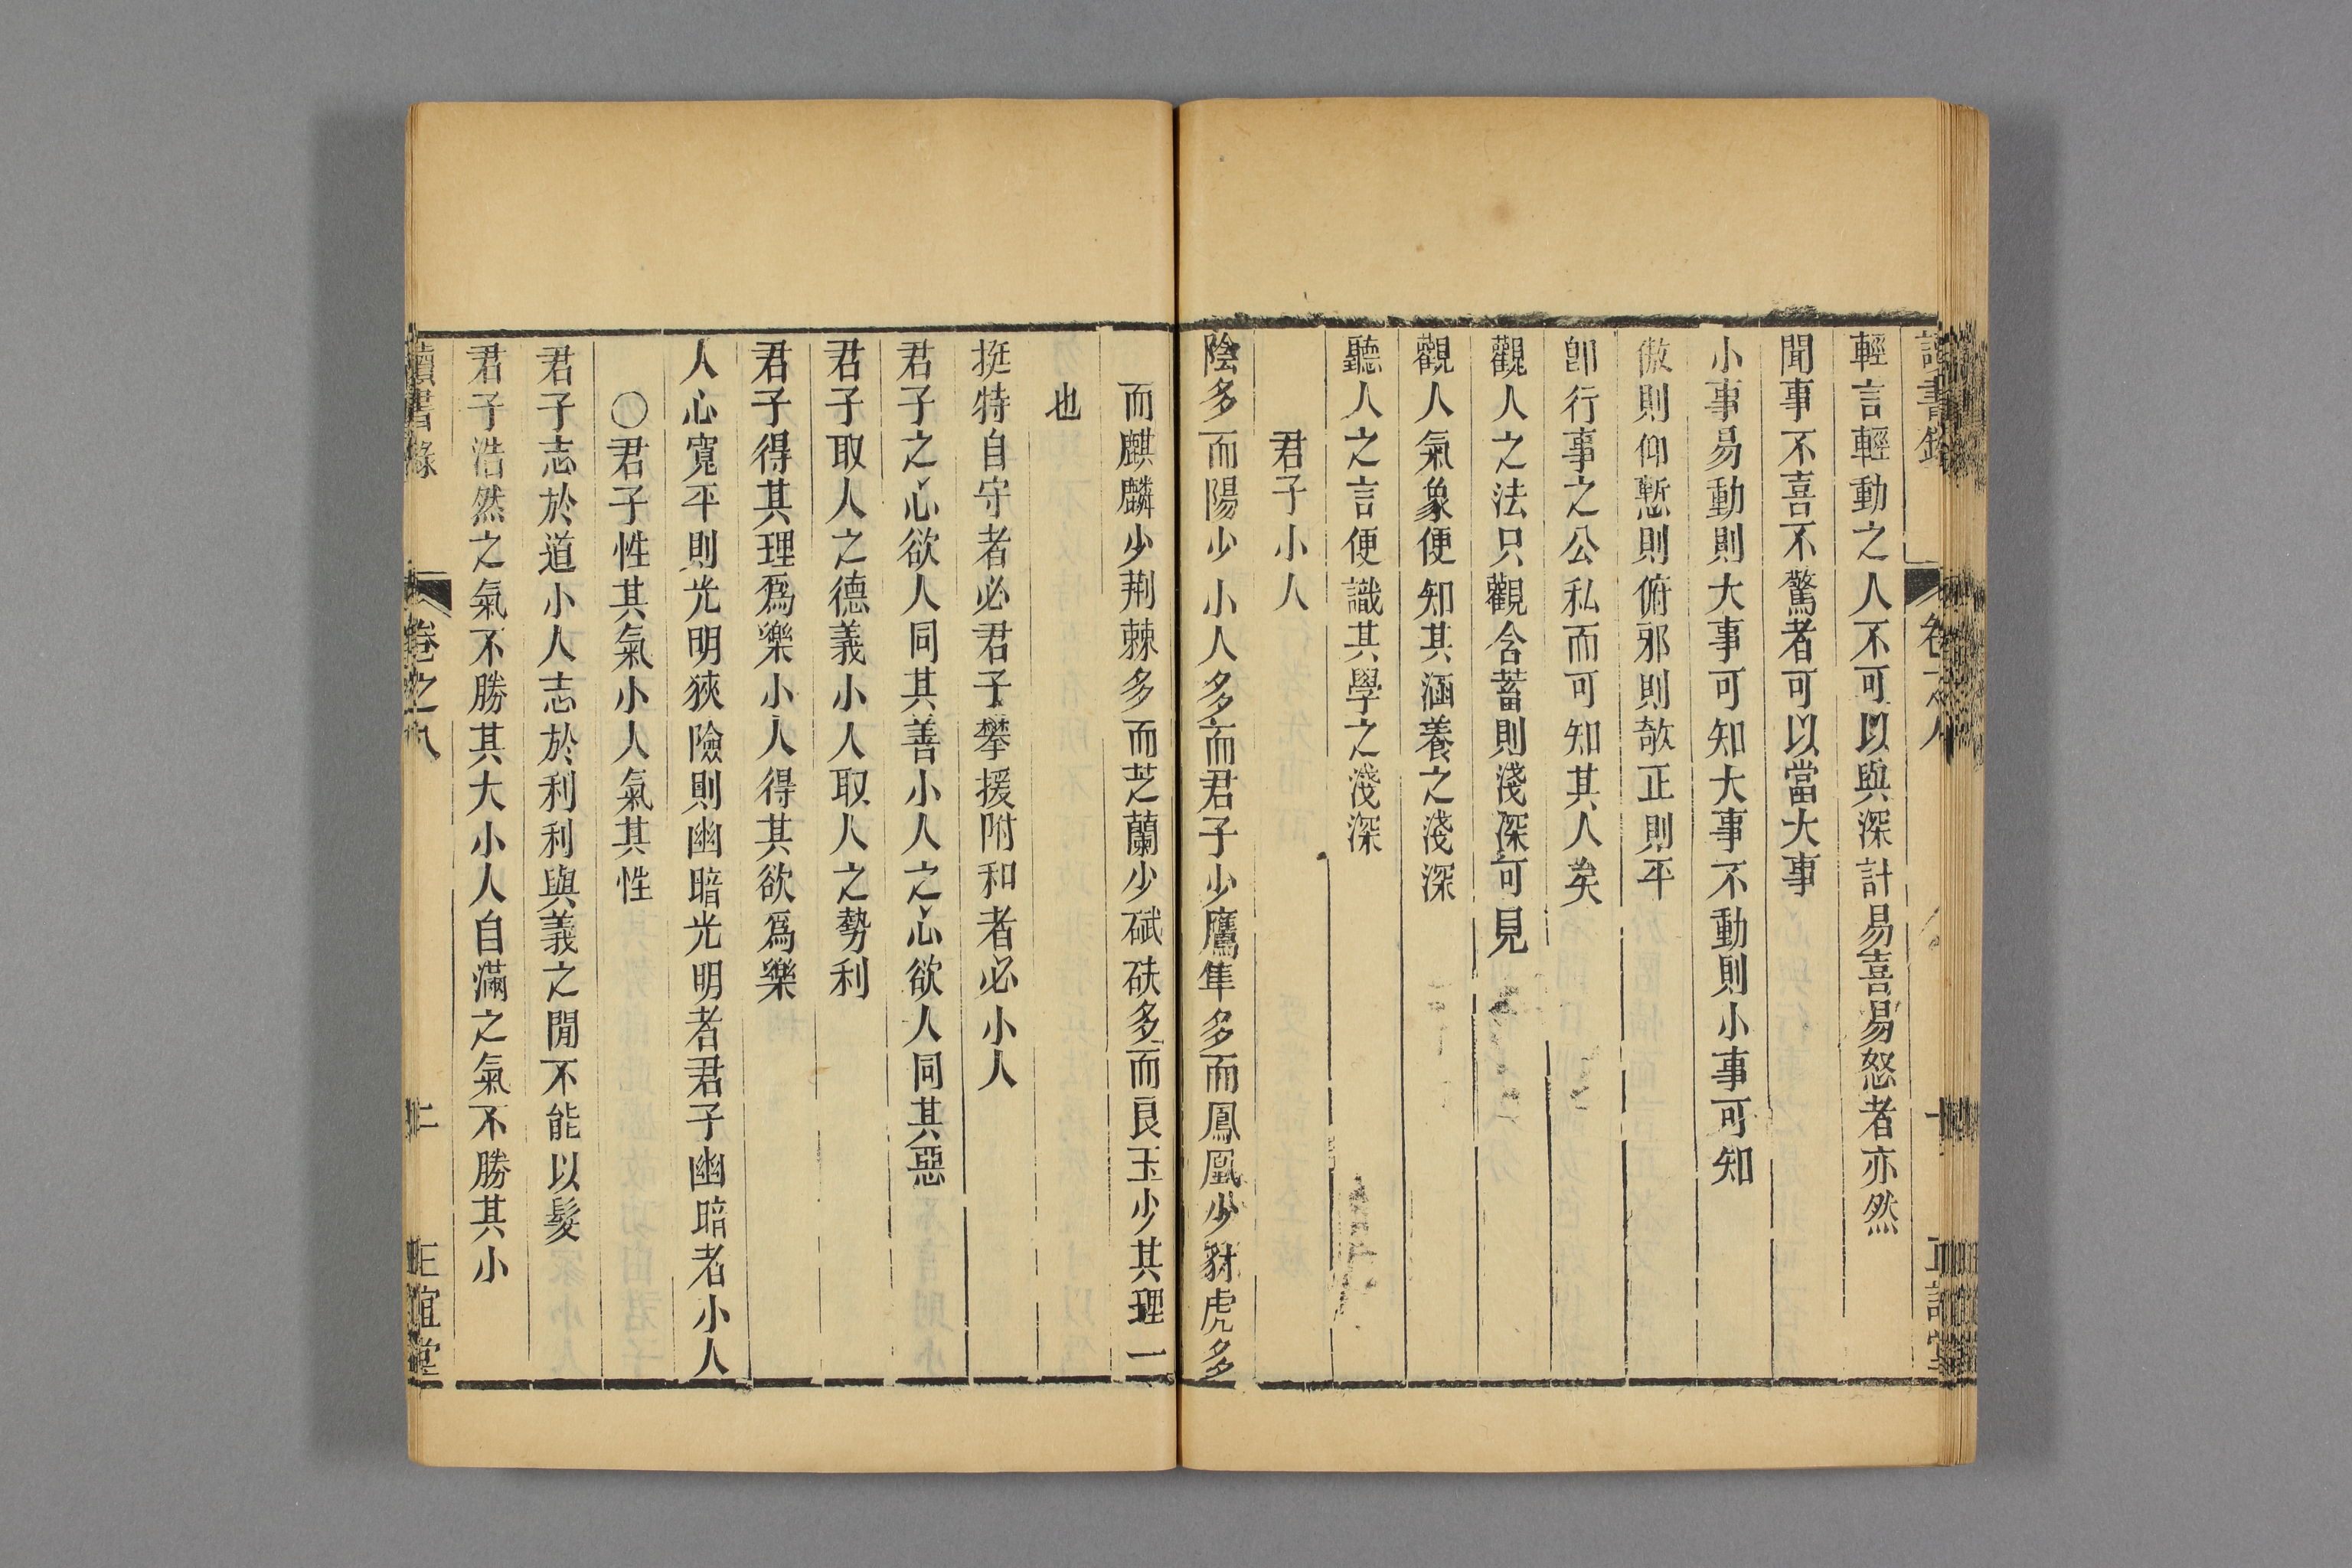 讀書錄 卷之八 十 正誼堂
輕言輕動之人不可以與深計易喜易怒者亦然
聞事不喜不驚者可以當大事
小事易動則大事可知大事不動則小事可知
傲則仰慙則俯邪則欹正則平
卽行事之公私而可知其人矣
觀人之法只觀含蓄則淺深可見
觀人氣象便知其涵養之淺深
聽人之言便識其學之淺深
君子小人
陰多而陽少小人多而君子少鷹隼多而鳳凰少豺虎多
而麒麟少荆棘多而芝蘭少碔砆多而良玉少其理一
也
挺特自守者必君子攀援附和者必小人
君子之心欲人同其善小人之心欲人同其惡
君子取人之德義小人取人之勢利
君子得其理爲樂小人得其欲爲樂
人心寬平則光明狹險則幽暗光明者君子幽暗者小人
〇君子性其氣小人氣其性
君子志於道小人志於利利與義之閒不能以髮
君子浩然之氣不勝其大小人自滿之氣不勝其小
讀書錄 卷之八 正誼堂